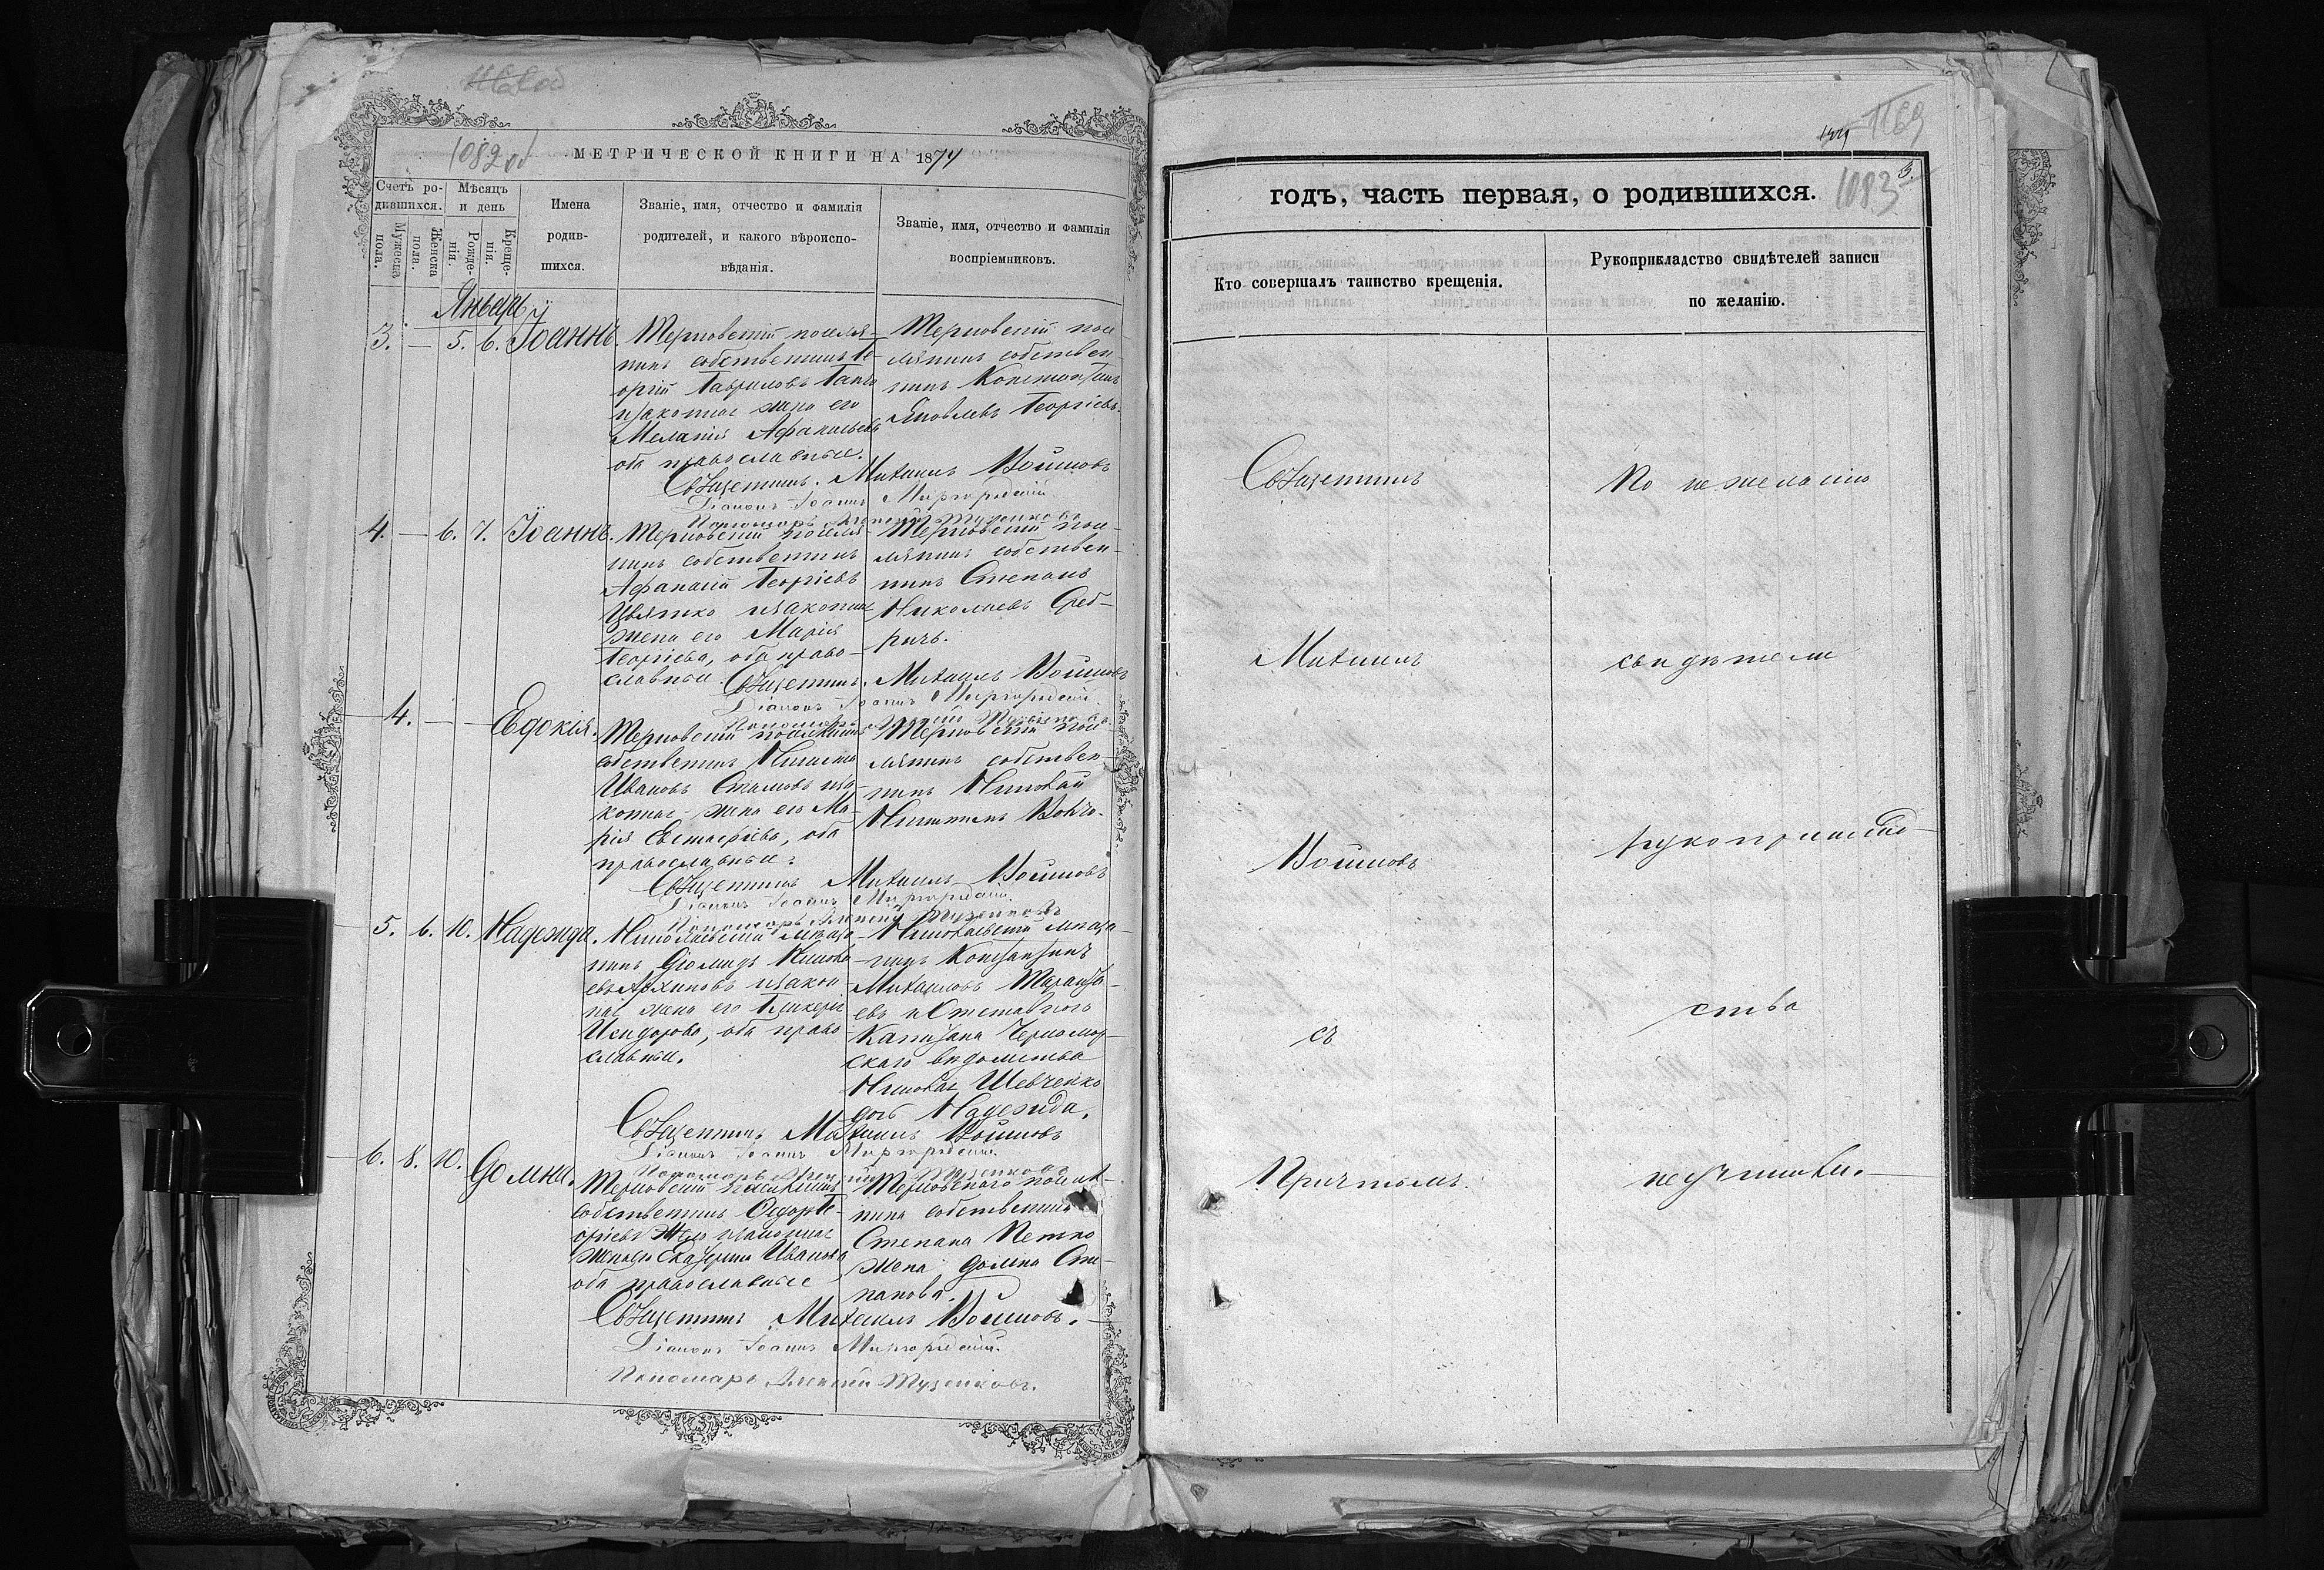 1082 об
МЕТРИЧЕСКОЙ КНИГИ НА 1874
Счетъ ро-
дившихся.
Мѣсяцъ
и день
Имена
родив-
шихся.
Званіе, имя, отчество и фамилія
родителей, и какого вѣроиспо-
вѣданія.
Званіе, имя, отчество и фамилія
воспріемниковъ.
Мужеска
пола.
Женска
пола.
Рожде-
нія.
Креще-
нія.
Январь
3. — 5. 6. Іоаннъ.
Терновскій поселя-
нинъ собственникъ Ге-
оргій Гавриловъ
и законная жена его
Меланія
оба православные.
Терновскій посе
лянинъ собствен-
никъ Константинъ
Яковлевъ Георгіевъ.
Священникъ. Михаилъ Войновъ
Діаконъ Іоаннъ Миргородскій
Пономарь Алексій Тузенковъ
4. — 6. 7. Іоаннъ.
Терновскій поселя
нинъ собственникъ
Афанасій Георгіевъ
Цвятко и законная
жена его Марія
Георгіева, оба право-
славные.
Терновскій посе-
лянинъ собствен-
никъ Степанъ
Николаевъ Греб-
ричъ.
Священникъ. Михаилъ Войновъ
Діаконъ Іоаннъ Миргородскій.
Пономарь Алексій Тузенковъ
4. — — Едокія.
Терновскій поселянинъ
собственникъ Никита
Ивановъ Стамовъ и за-
конная жена его Ма-
рія Евстафіева, оба
православные.
Терновскій посе
лянинъ собствен-
никъ Николай
Никитинъ
Священникъ Михаилъ Войновъ
Діаконъ Іоаннъ Миргородскій.
Пономарь Алексій Тузенковъ
5. 6. 10. Надежда.
Николаевскій мѣща-
нинъ Діомидъ Никола
евъ Архиповъ и закон-
ная жена его Гликерія
Исидорова, оба право
славные.
Николаевскій мѣща-
нинъ Константинъ
Михаиловъ
евъ и Отставного
Капитана Черномор-
скаго вѣдомства
Николая Шевченко
дочь Надежда.
Священникъ Михаилъ Войновъ
Діаконъ Іоаннъ Миргородскій.
Пономарь Алексій Тузенковъ
6. 8. 10. Домна.
Терновскій поселянинъ
собственникъ Ѳедоръ Ге-
оргіевъ и законная
жена его Екатерина Иванова
оба православные
Терновскаго поселя-
нина собственника
Степана Петко
жена Домна Сте-
панова.
Священникъ Михаилъ Войновъ.
Діаконъ Іоаннъ Миргородскій.
Пономарь Алексій Тузенковъ.
1169
3.
1083
годъ, часть первая, о родившихся.
Кто совершалъ таинство крещенія.
Рукоприкладство свидѣтелей записи
по желанію.
Священникъ
По нежеланію
Михаилъ
свидѣтели
Войновъ
рукоприклад-
съ
ства
Причтомъ.
неучинили.